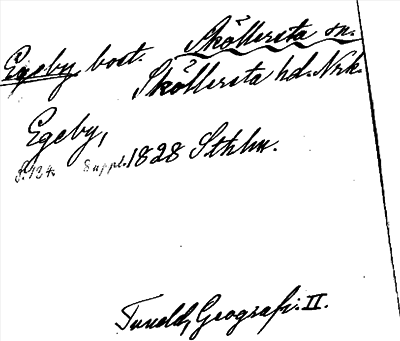 Egeby, bost. Sköllersta sn.
Sköllersta hd. Nrk.
Egeby,
S. 134. Suppl. 1828 Sthlm.
Tuneld, Geografi. II.